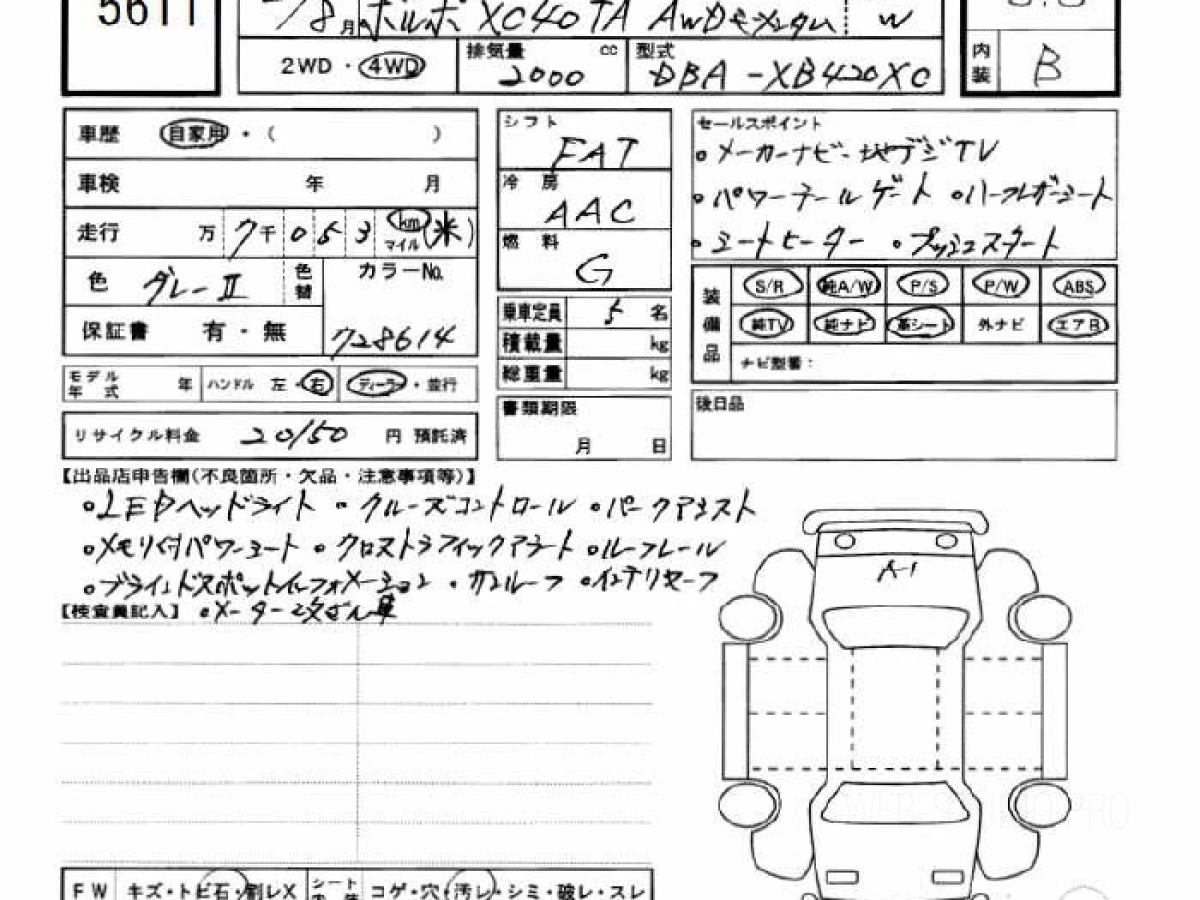 5611
/8月 ボルボ XC40 TA AWDモメンタム W
2WD・4WD 排気量 2000 cc 型式 DBA-XB420XC
内装 B
車歴 自家用・( )
車検 年 月
走行 万 7千 0 5 3 km マイル (米)
色 グレーII 色替 カラーNo. 728614
保証書 有・無
モデル年式 年 ハンドル 左・右 ディーラー・並行
リサイクル料金 20150 円 預託済
シフト FAT
冷房 AAC
燃料 G
乗車定員 5 名
積載量 kg
総重量 kg
書類期限 月 日
セールスポイント
・メーカーナビ・地デジTV
・パワーテールゲート ・ハーフレザーシート
・シートヒーター ・プッシュスタート
装備品 S/R 純A/W P/S P/W ABS
純TV 純ナビ 革シート 外ナビ エアB
ナビ型番:
後日品
【出品店申告欄(不良箇所・欠品・注意事項等)】
・LEDヘッドライト ・クルーズコントロール ・パークアシスト
・メモリ付パワーシート ・クロストラフィックアラート ・ルーフレール
・ブラインドスポットインフォメーション ・サンルーフ ・インテリセーフ
【検査員記入】 ・メーター改ざん車
A-1
FW キズ・トビ石・割レX シート内張 コゲ・穴・汚レ・シミ・破レ・スレ
WEB STUDIO PRO